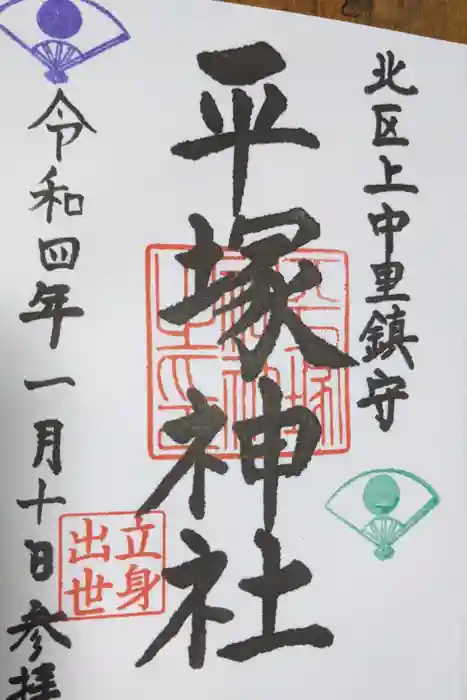 北区上中里鎮守
平塚神社
令和四年一月十日参拝
立身
出世